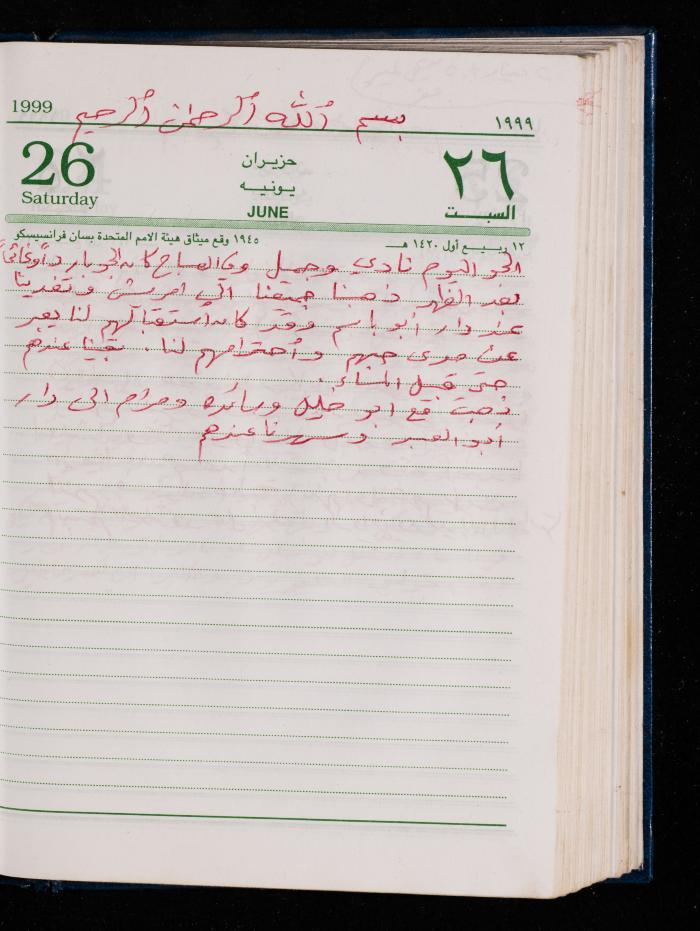 بسم الله الرحمن الرحيم
1999
١٩٩٩
26
Saturday
حزيران
يونيه
JUNE
٢٦
السبت
١٢ ربيع أول ١٤٢٠ هـ
١٩٤٥ وقع ميثاق هيئة الامم المتحدة بسان فرانسيسكو
الجو اليوم نادي وجميل وفي الصباح كان الجو بارداً وغائماً
بعد الظهر ذهبنا جميعنا الى امريش وتغدينا
عند دار أبو باسم وقد كان استقبالهم لنا يعبر
عن مدى حبهم وأحترامهم لنا. بقينا عندهم
حتى قبل المساء.
ذهبت مع ابو خليل وسائده ومرام الى دار
أبو العبد وسهرنا عندهم